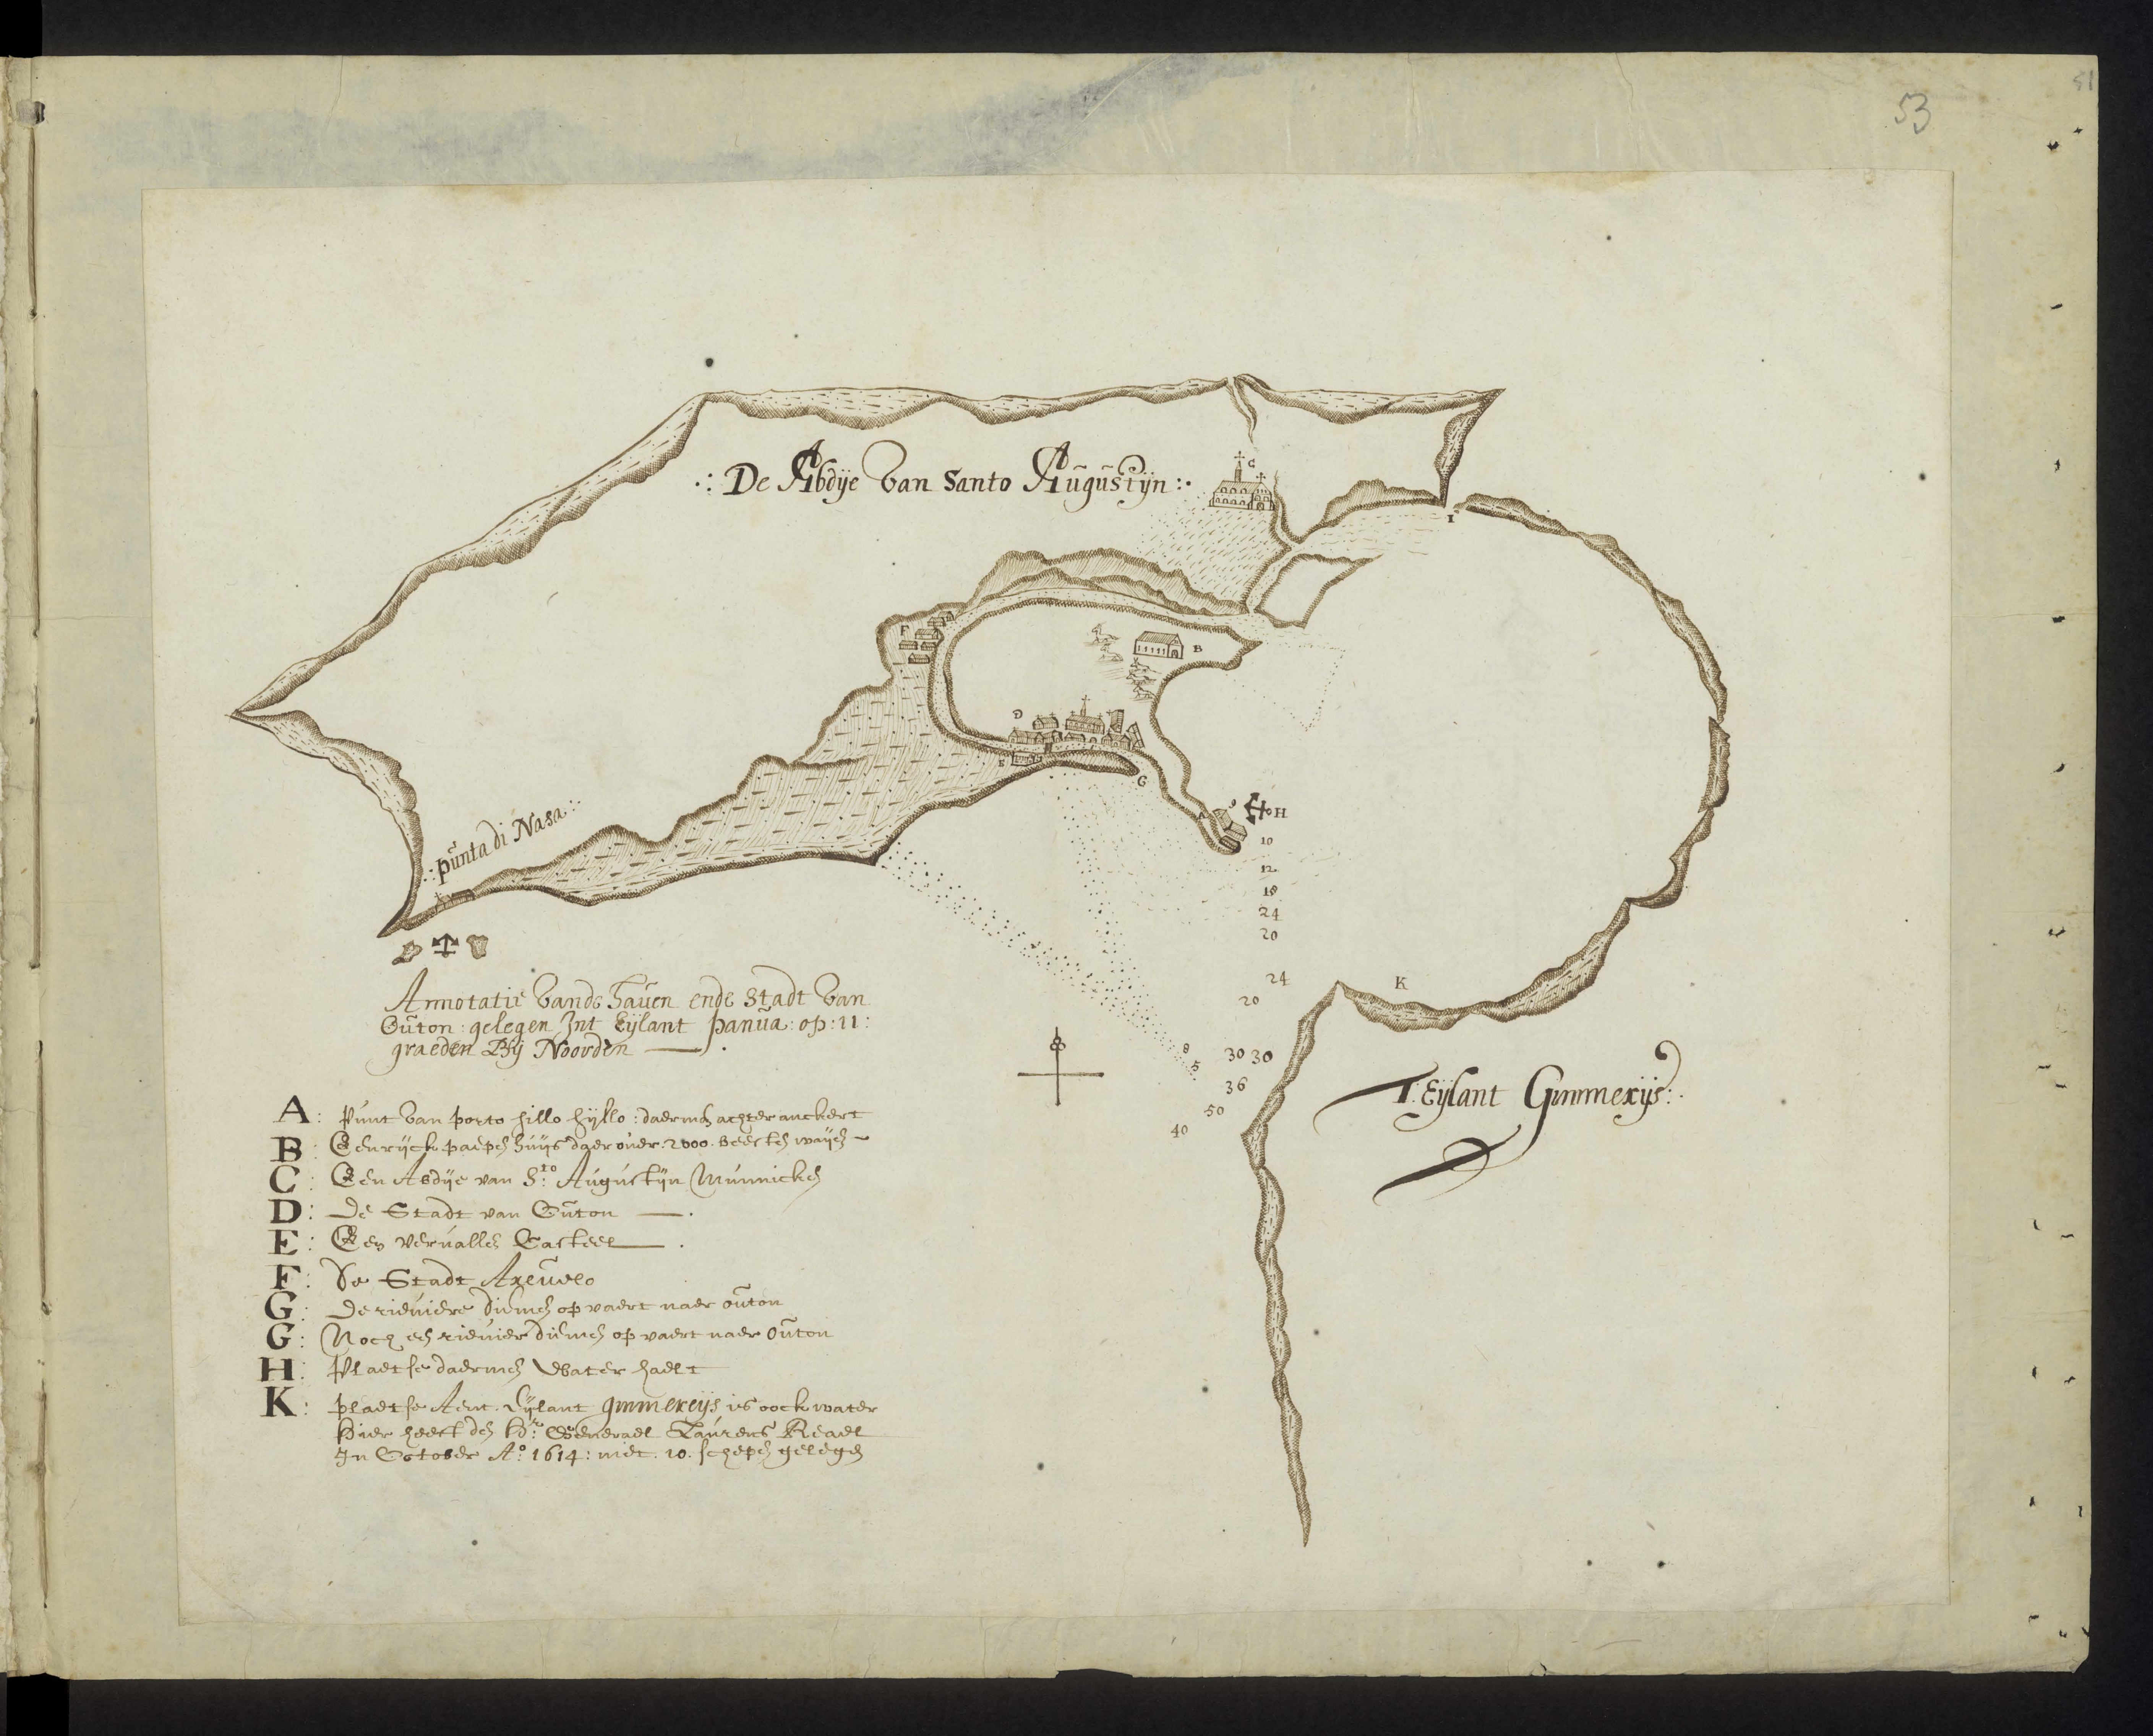 53
51
.: De Abdÿe van Santo Augustÿn :.
C
I
F
B
D
E
G
A
9
H
10
12
18
24
20
24
20
K
8
5
30 30
36
50
40
.: punta di Nasa :.
Annotatie vande haven ende Stadt van
Outon : gelegen Int Eÿlant panua : op : 11 :
graeden Bÿ Noorden
T. Eÿlant Gimmerÿs :.
A : Punt van porto hillo hÿllo : daermen achter anckert
B : Een rÿck papen huÿs daer over 2000 beesten waÿen
C : Een Abdÿe van Sto Augustÿn Munnicken
D : De Stadt van Outon
E : Een vervallen Casteel
F : De Stadt Arevelo
G : De rieviere diemen op vaert naer outon
G : Noch een rievier diemen op vaert naer Outon
H : Plaetse daermen Water haelt
K : plaetse Aent Eÿlant gimmereÿs is oock water
Hier heeft den Hr Generael Laurens Reael
In October Ao 1614 : met 10 schepen gelegen